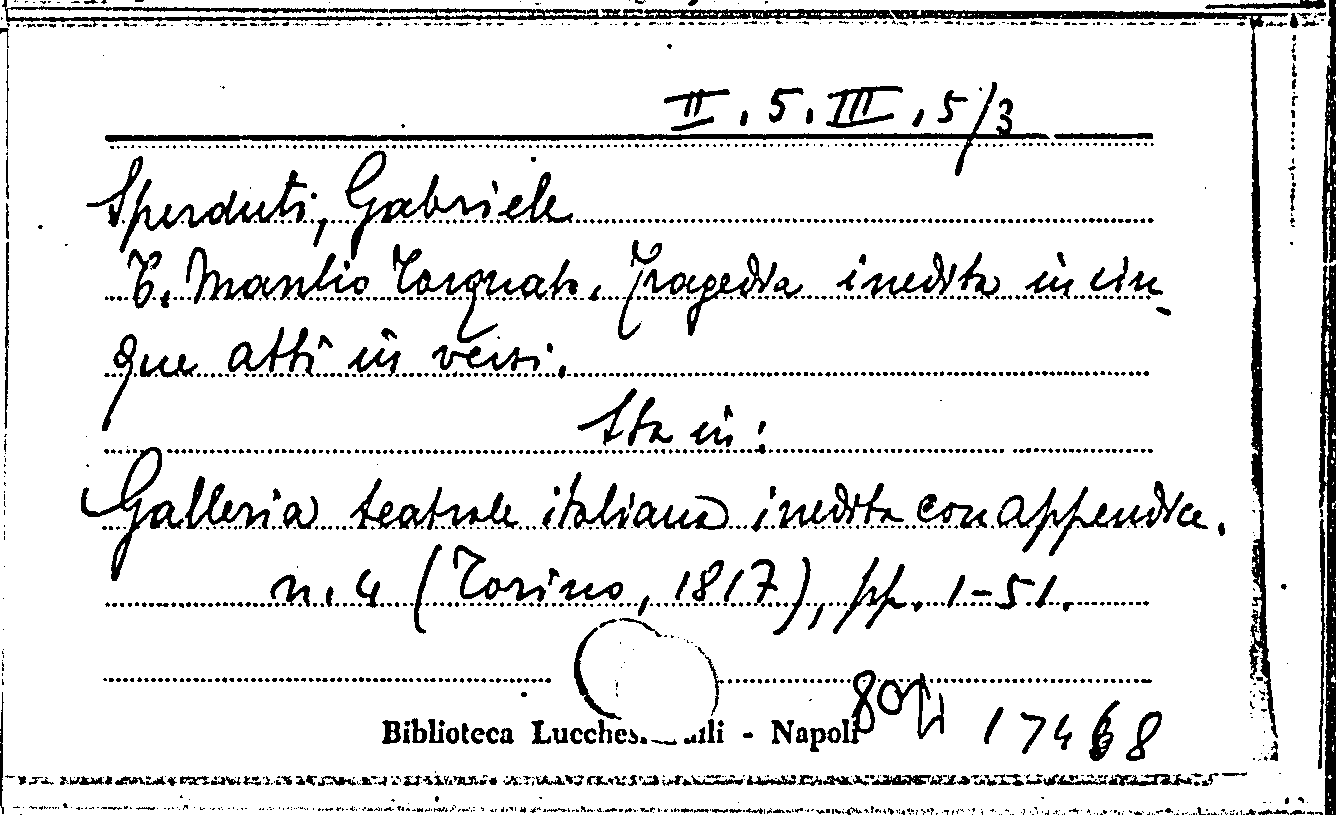 II. 5. III. 5/3
Sperduti, Gabriele
T. Manlio Torquato. Tragedia inedita in cin-
que atti in versi.
Sta in:
Galleria teatrale italiana inedita con appendice.
n. 4 (Torino, 1817), pp. 1-51.
Biblioteca Lucches. - Napoli
17468